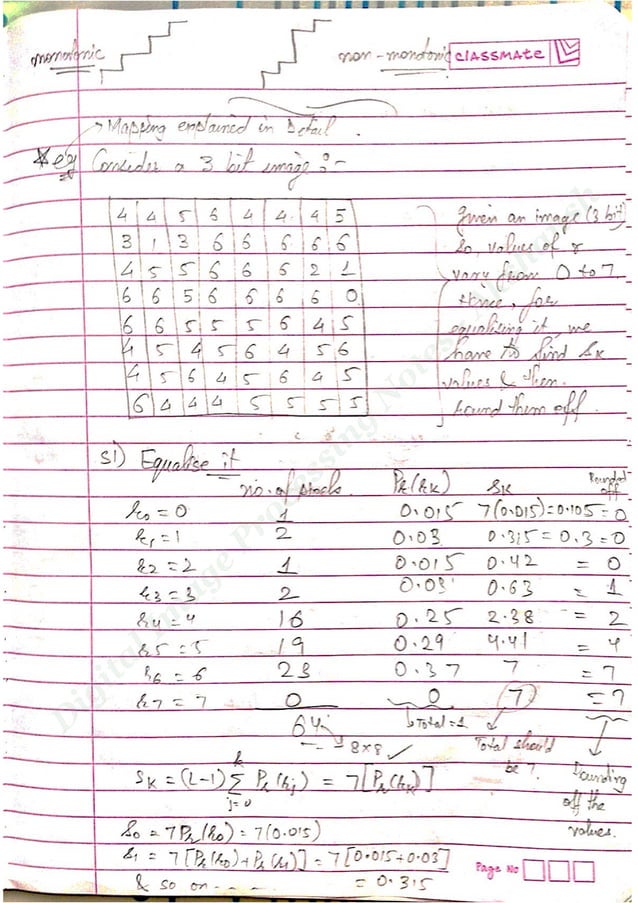 monotonic non-monotonic classmate
→ Mapping explained in detail.
* eg Consider a 3 bit image :-
4 4 5 6 4 4 4 5
3 1 3 6 6 6 6 6
4 5 5 6 6 6 2 1
6 6 5 6 6 6 6 0
6 6 5 5 5 6 4 5
4 5 4 5 6 4 5 6
4 5 6 4 5 6 4 5
6 4 4 4 5 5 5 5
Given an image (3 bit)
so, values of r
vary from 0 to 7.
Hence, for
equalising it, we
have to find Sk
values & then
round them off.
S1) Equalise it
no. of pixels Pr(rk) Sk Rounded off
r0 = 0 1 0.015 7(0.015)=0.105 = 0
r1 = 1 2 0.03 0.315 = 0.3 = 0
r2 = 2 1 0.015 0.42 = 0
r3 = 3 2 0.03 0.63 = 1
r4 = 4 16 0.25 2.38 = 2
r5 = 5 19 0.29 4.41 = 4
r6 = 6 23 0.37 7 = 7
r7 = 7 0 0 7 = 7
64 → 8x8 ✓
↳ Total = 1
Total should
be 7.
Rounding
off the
values.
Sk = (L-1) k Σ j=0 Pr(rj) = 7[Pr(rk)]
S0 = 7Pr(r0) = 7(0.015)
S1 = 7[Pr(r0)+Pr(r1)] = 7[0.015+0.03]
& so on - - - - = 0.315
Page No
Digital Image Processing Notes